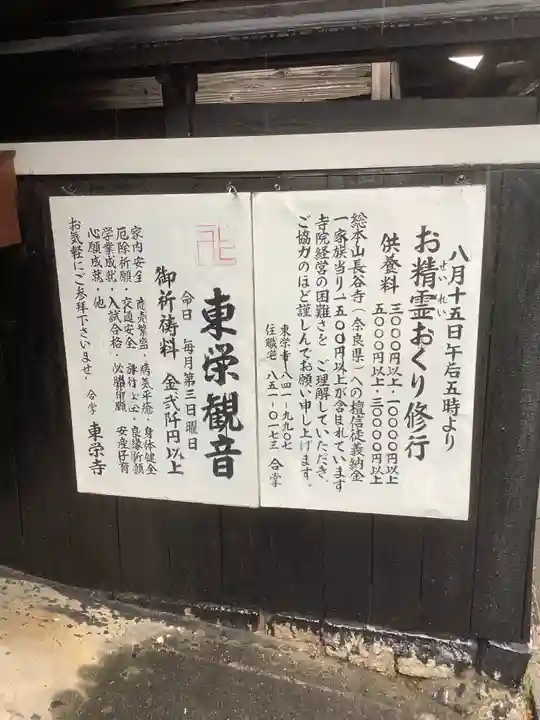 八月十五日午后五時より
お精霊おくり修行
せいれい
供養料
三〇〇〇円以上・一〇〇〇〇円以上
五〇〇〇円以上・三〇〇〇〇円以上
総本山長谷寺(奈良県)への檀信徒義納金
一家族当り一五〇〇円以上が含まれています
寺院経営の困難さを ご理解していただき、
ご協力のほど謹しんでお願い申し上げます。
東栄寺 八四一-九九〇七
住職宅 八五一-〇一七三 合掌
卍
東栄観音
命日 毎月第三日曜日
御祈祷料 金弐阡円以上
家内安全・商売繁盛・病気平癒・身体健全
厄除祈願・交通安全・旅行安全・良縁祈願
学業成就・入試合格・必勝祈願・安産子育
心願成就・他
お気軽にご参拝下さいませ。合掌 東栄寺